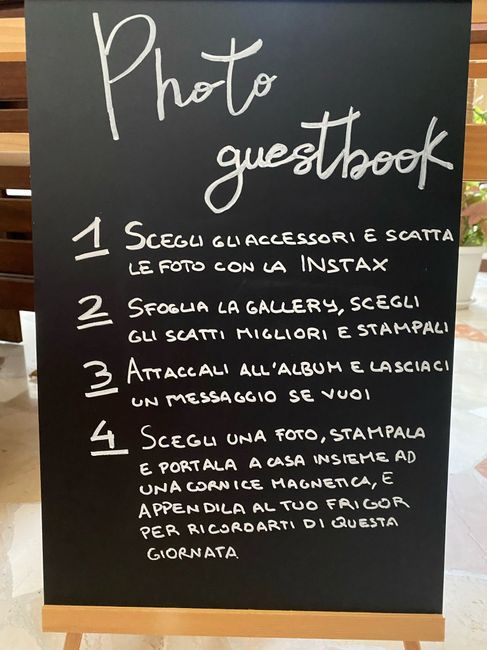 Photo
guestbook
1 SCEGLI GLI ACCESSORI E SCATTA
LE FOTO CON LA INSTAX
2 SFOGLIA LA GALLERY, SCEGLI
GLI SCATTI MIGLIORI E STAMPALI
3 ATTACCALI ALL'ALBUM E LASCIACI
UN MESSAGGIO SE VUOI
4 SCEGLI UNA FOTO, STAMPALA
E PORTALA A CASA INSIEME AD
UNA CORNICE MAGNETICA, E
APPENDILA AL TUO FRIGOR
PER RICORDARTI DI QUESTA
GIORNATA